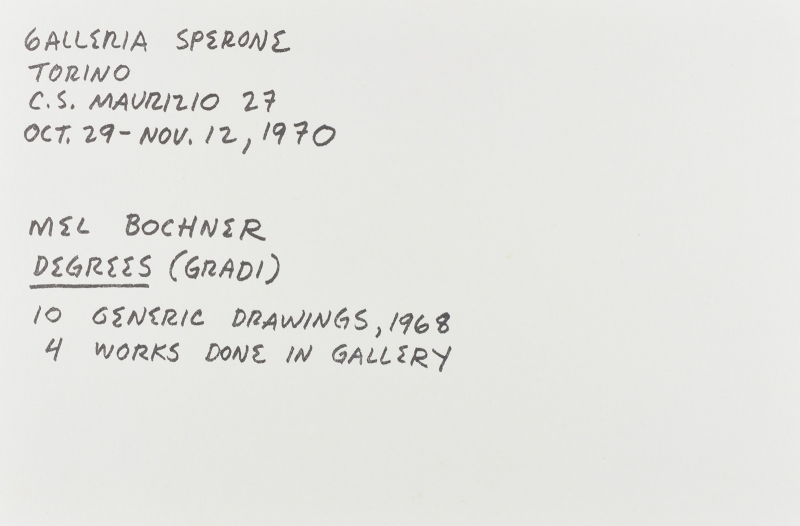 GALLERIA SPERONE
TORINO
C.S. MAURIZIO 27
OCT. 29 - NOV. 12, 1970
MEL BOCHNER
DEGREES (GRADI)
10 GENERIC DRAWINGS, 1968
4 WORKS DONE IN GALLERY